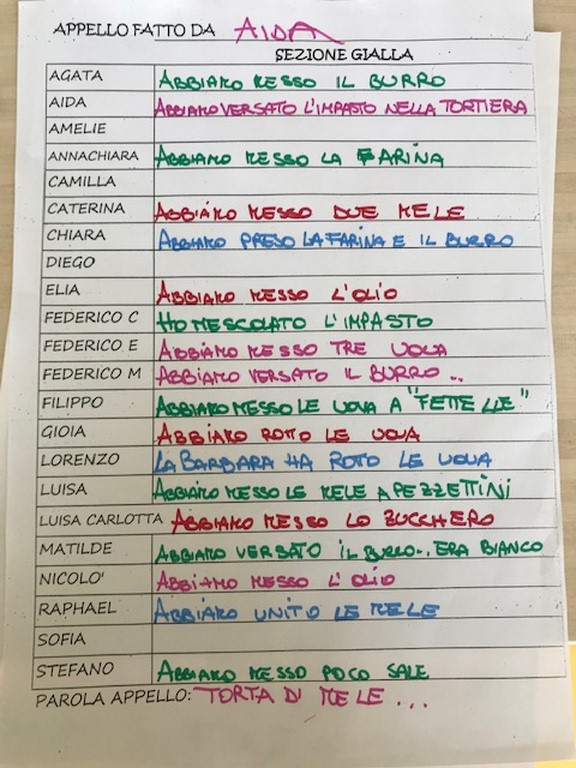 APPELLO FATTO DA AIDA
SEZIONE GIALLA
AGATA ABBIAMO MESSO IL BURRO
AIDA ABBIAMO VERSATO L'IMPASTO NELLA TORTIERA
AMELIE
ANNACHIARA ABBIAMO MESSO LA FARINA
CAMILLA
CATERINA ABBIAMO MESSO DUE MELE
CHIARA ABBIAMO PRESO LA FARINA E IL BURRO
DIEGO
ELIA ABBIAMO MESSO L'OLIO
FEDERICO C HO MESCOLATO L'IMPASTO
FEDERICO E ABBIAMO MESSO TRE UOVA
FEDERICO M ABBIAMO VERSATO IL BURRO..
FILIPPO ABBIAMO MESSO LE UOVA A "FETTELLE"
GIOIA ABBIAMO ROTTO LE UOVA
LORENZO LA BARBARA HA ROTO LE UOVA
LUISA ABBIAMO MESSO LE MELE A PEZZETTINI
LUISA CARLOTTA ABBIAMO MESSO LO ZUCCHERO
MATILDE ABBIAMO VERSATO IL BURRO.. ERA BIANCO
NICOLO' ABBIAMO MESSO L'OLIO
RAPHAEL ABBIAMO UNITO LE MELE
SOFIA
STEFANO ABBIAMO MESSO POCO SALE
PAROLA APPELLO: TORTA DI MELE ...